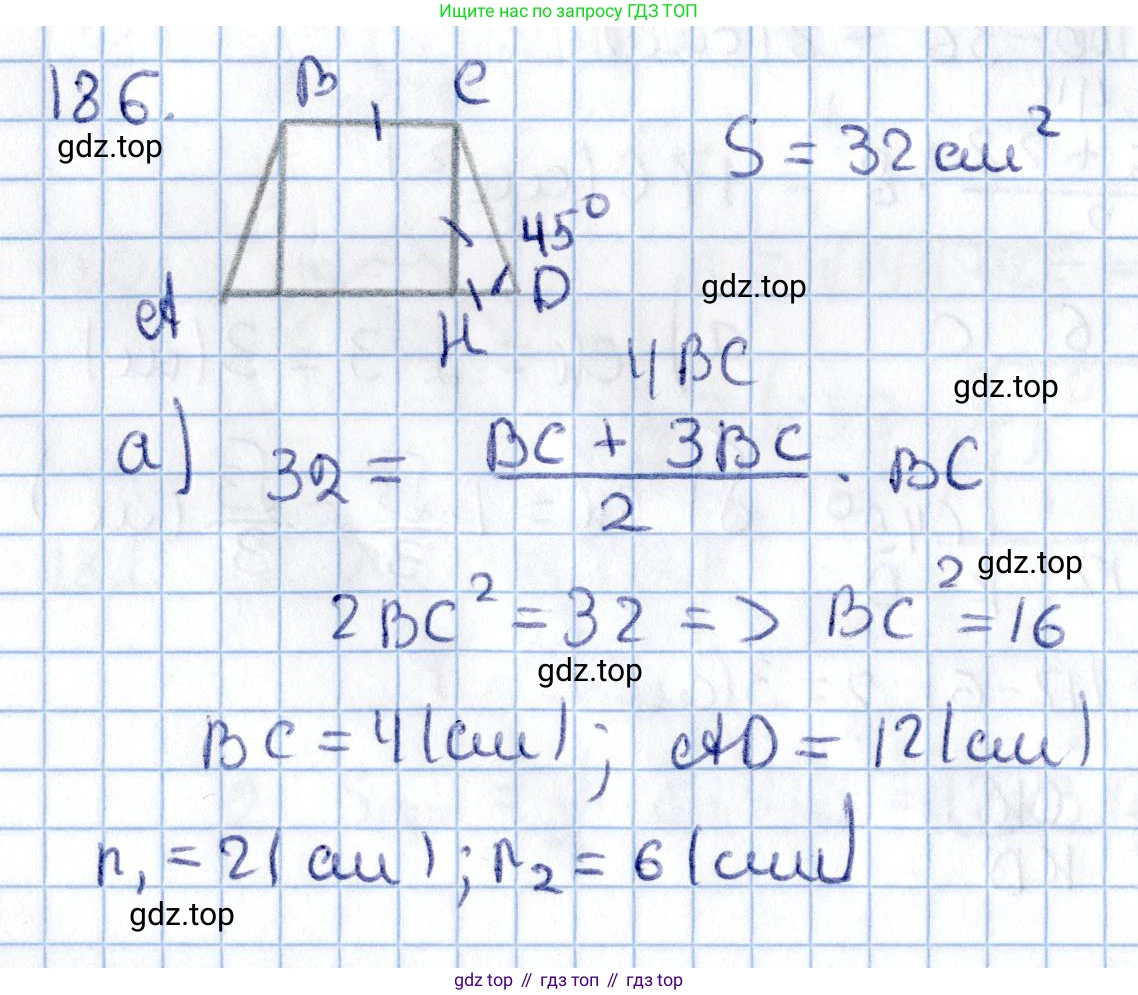 Ищите нас по запросу ГДЗ ТОП
186.
gdz.top
B C
S = 32 см²
45°
A H D
gdz.top
4BC
gdz.top
а) 32 = (BC + 3BC)/2 · BC
gdz.top
2BC² = 32 => BC² = 16
gdz.top
BC = 4 (см); AD = 12 (см)
r₁ = 2 (см); r₂ = 6 (см)
gdz.top
gdz top // гдз топ // gdz top